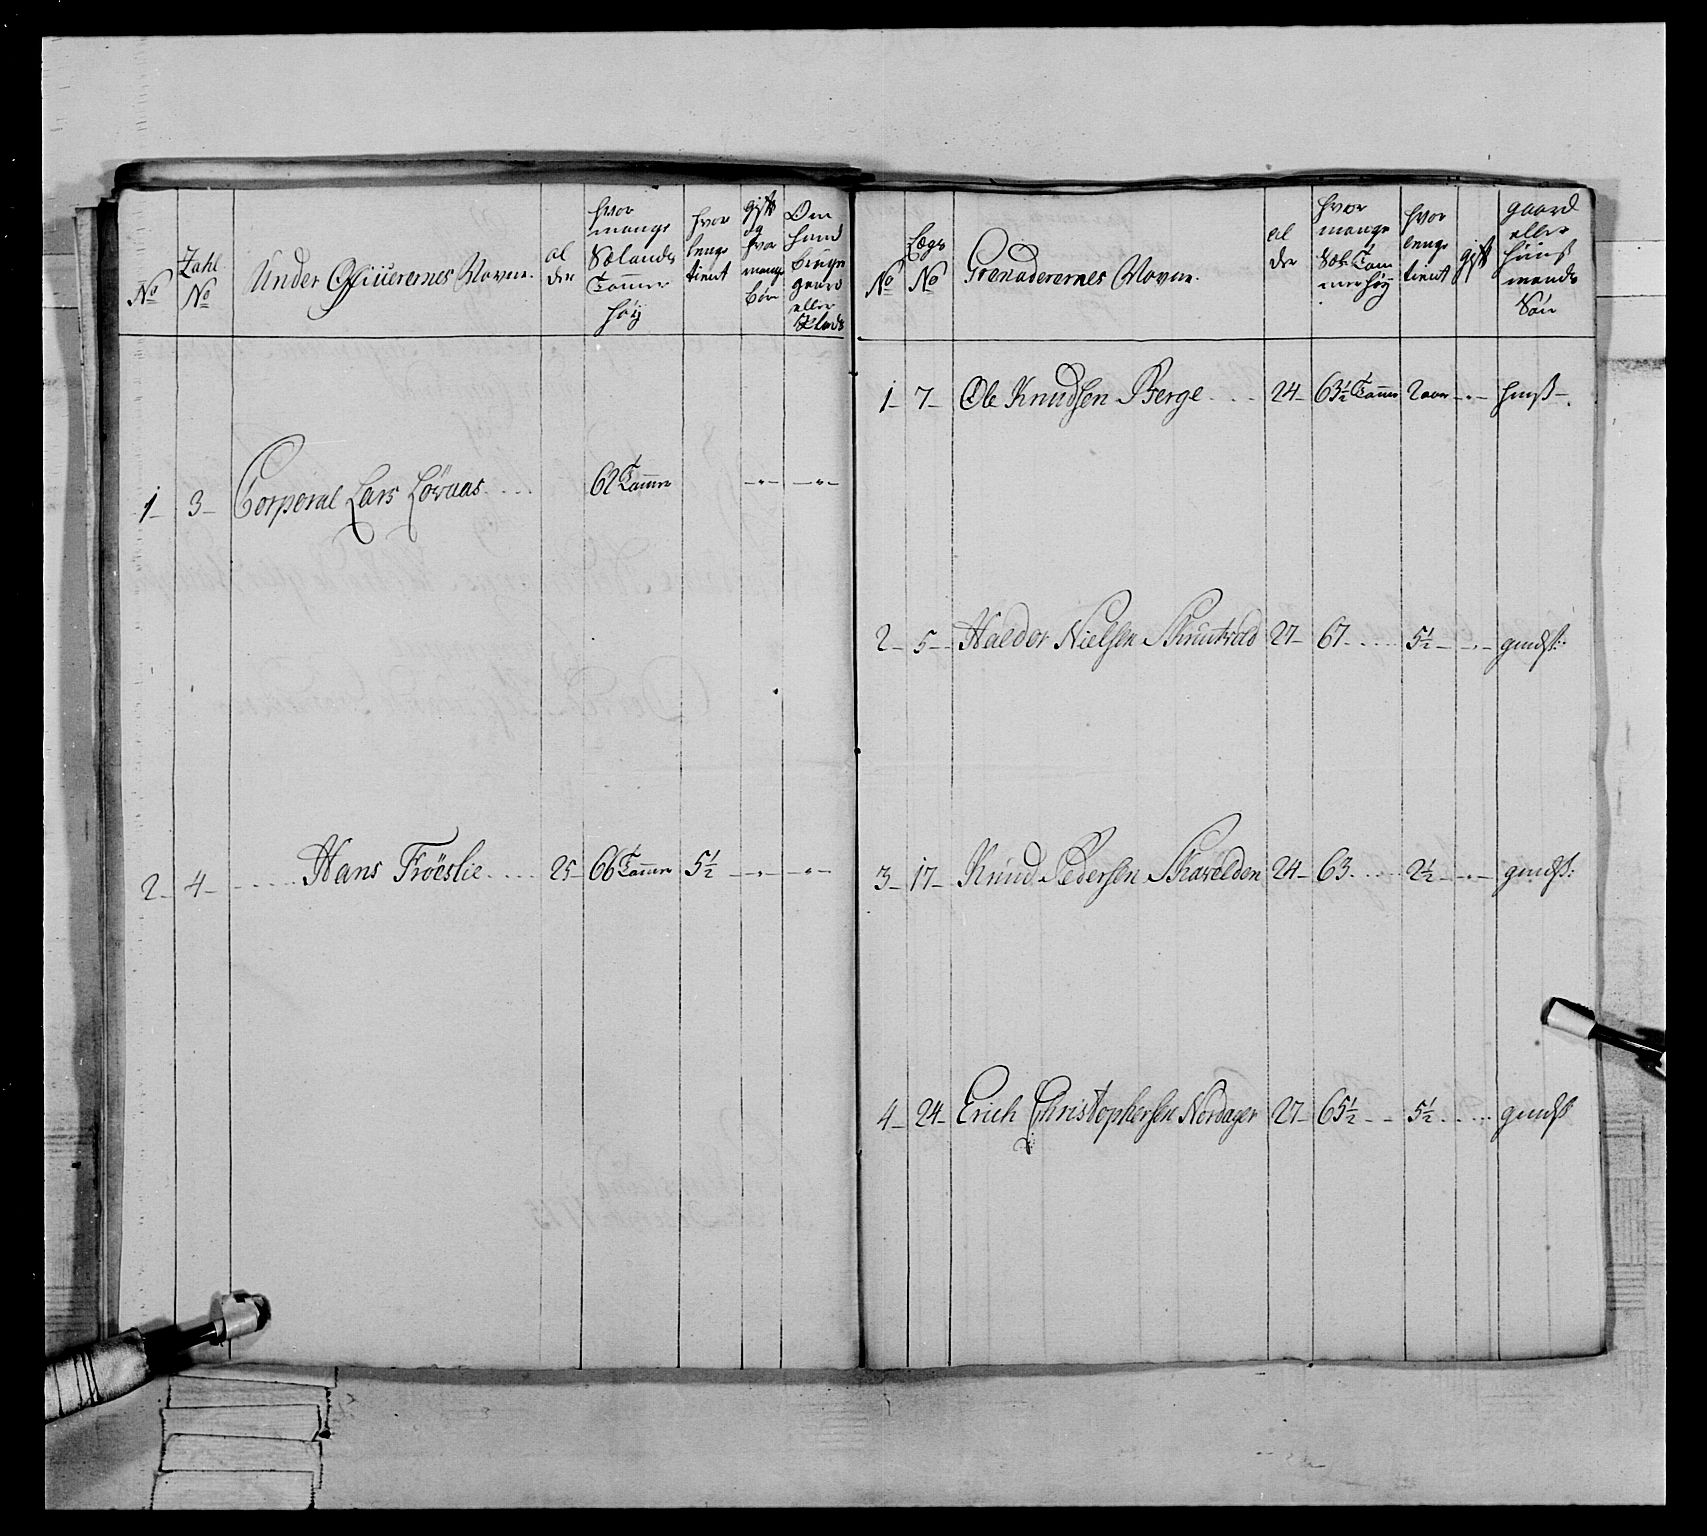 No
Zahl No
Under Officerernes Navne.
al der
hvor mange Sælands Tommer høy
hvor lenge tient
gift og hvor mange børn
Om hand bruger gaard eller Plads
1 3 Corporal Lars Løvaas 62 Tommer
2 4 Hans Fröeslie 25 66 Tommer 5½
No
Lægs No
Grenaderernes Navne.
al der
hvor mange Sæl: Tom mer høy
hvor lenge tient
gift
gaard eller huus mands Søn
1 7 Ole Knudsen Berge 24 63½ Tomer 2 aar huuß
2 5 Haldor Nielsen 27 67 5½ gmdß:
3 17 Knud Pedersen 24 63 2½ gmdß:
4 24 Erich Christophersen Nordager 27 65½ 5½ gmdß